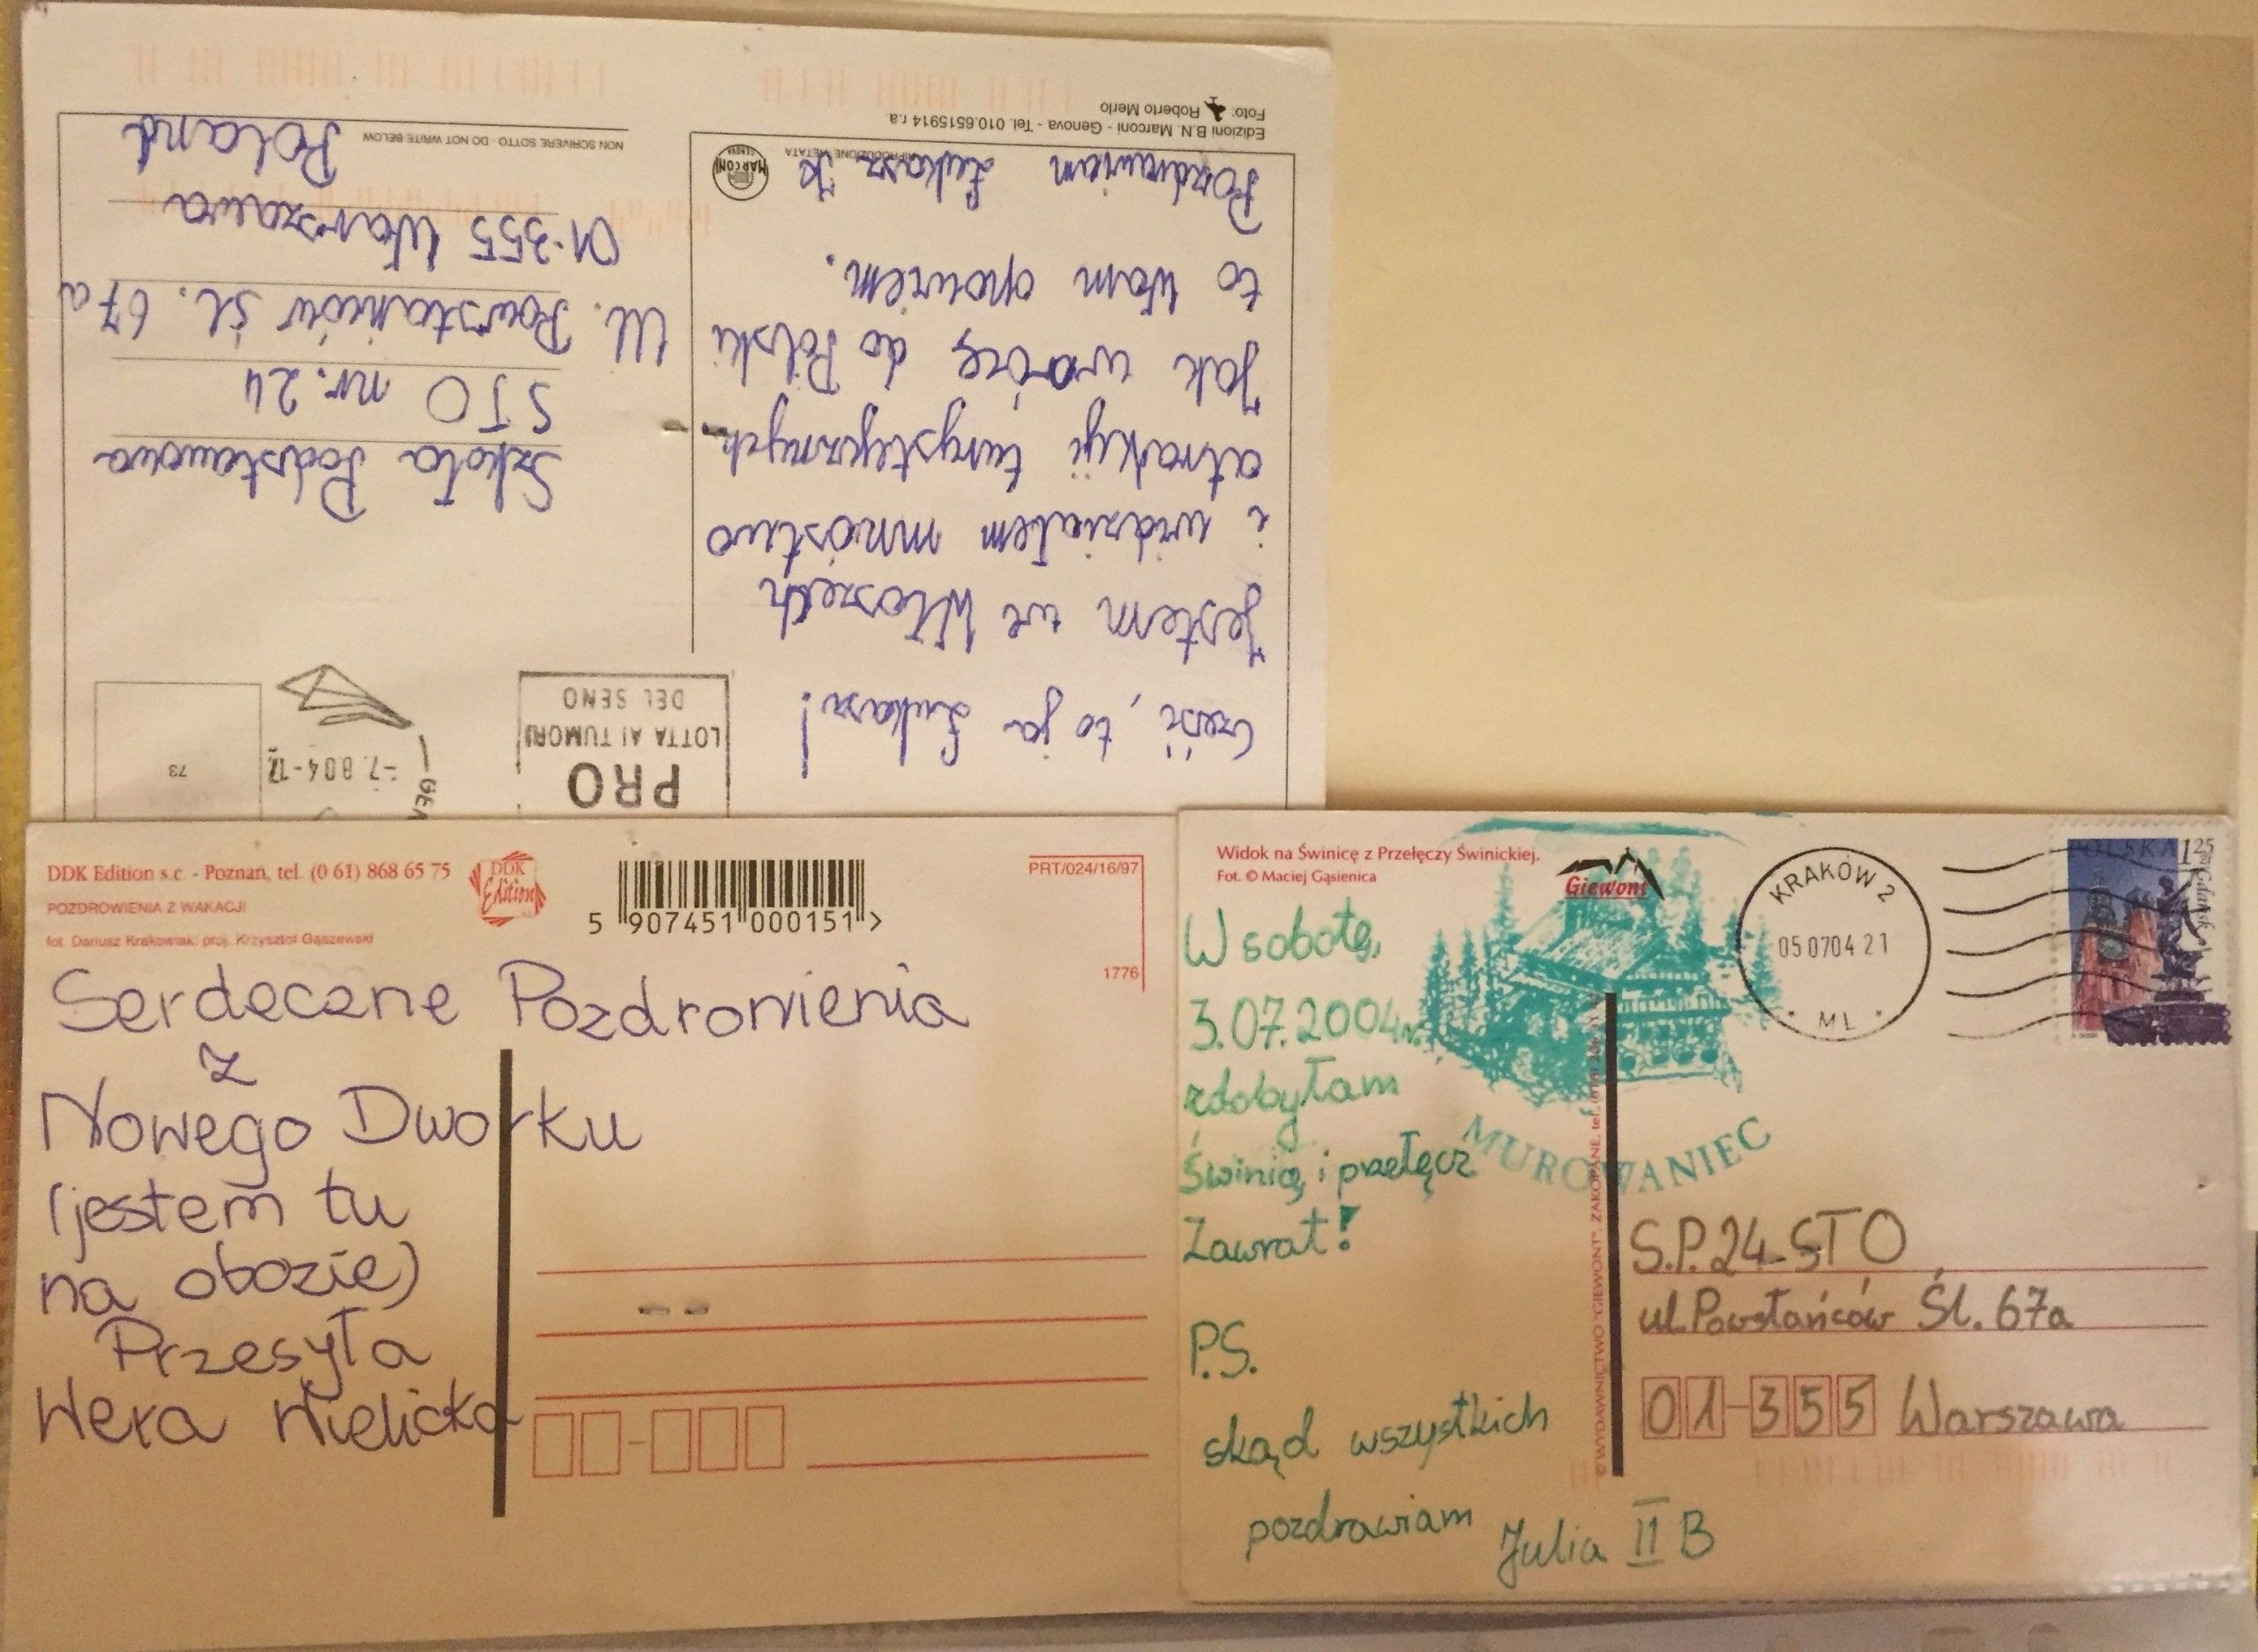 Edizioni B.N. Marconi - Genova - Tel. 010.6515914 r.a.
Foto: Roberto Merlo
RIPRODUZIONE VIETATA
MARCONI
GENOVA
Cześć, to ja Łukasz!
Jestem we Włoszech
i widziałem mnóstwo
atrakcji turystycznych.
Jak wrócę do Polski
to Wam opowiem.
Pozdrawiam Łukasz K
PRO
LOTTA AI TUMORI
DEL SENO
-7.8 04-12
GE
73
Szkoła Podstawowa
STO nr. 24
Ul. Powstańców śl. 67a
01-355 Warszawa
Poland
NON SCRIVERE SOTTO - DO NOT WRITE BELOW
DDK Edition s.c. - Poznań, tel. (0 61) 868 65 75
POZDROWIENIA Z WAKACJI
fot. Dariusz Krakowiak; proj. Krzysztof Gąszewski
DDK
Edition
5 907451 000151 >
PRT/024/16/97
1776
Serdeczne Pozdrowienia
z
Nowego Dworku
(jestem tu
na obozie)
Przesyła
Wera Wielicka
Widok na Świnicę z Przełęczy Świnickiej.
Fot. © Maciej Gąsienica
Giewont
KRAKÓW 2
05 07 04 21
ML
POLSKA 1,25 zł
Gdańsk
W sobotę,
3.07.2004r.
zdobyłam
Świnicę i przełęcz
Zawrat!
P.S.
skąd wszystkich
pozdrawiam
Julia II B
MUROWANIEC
© WYDAWNICTWO "GIEWONT", ZAKOPANE, tel.
S.P. 24 STO
ul. Powstańców Śl. 67a
01-355 Warszawa